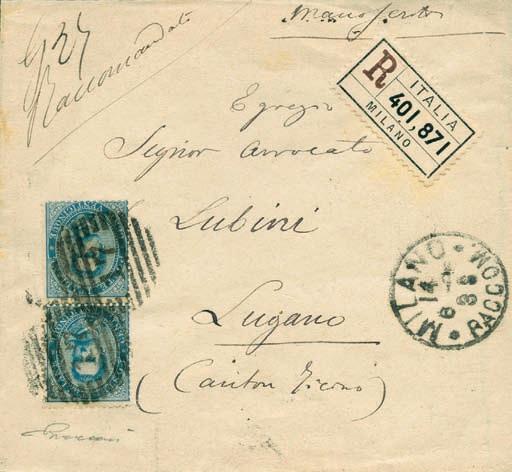 Manoscritti
Raccomandata
R
ITALIA
401,871
MILANO
Egregio
Signor Avvocato
Lubini
Lugano
(Canton Ticino)
MILANO * RACCOM. *
14
6
88